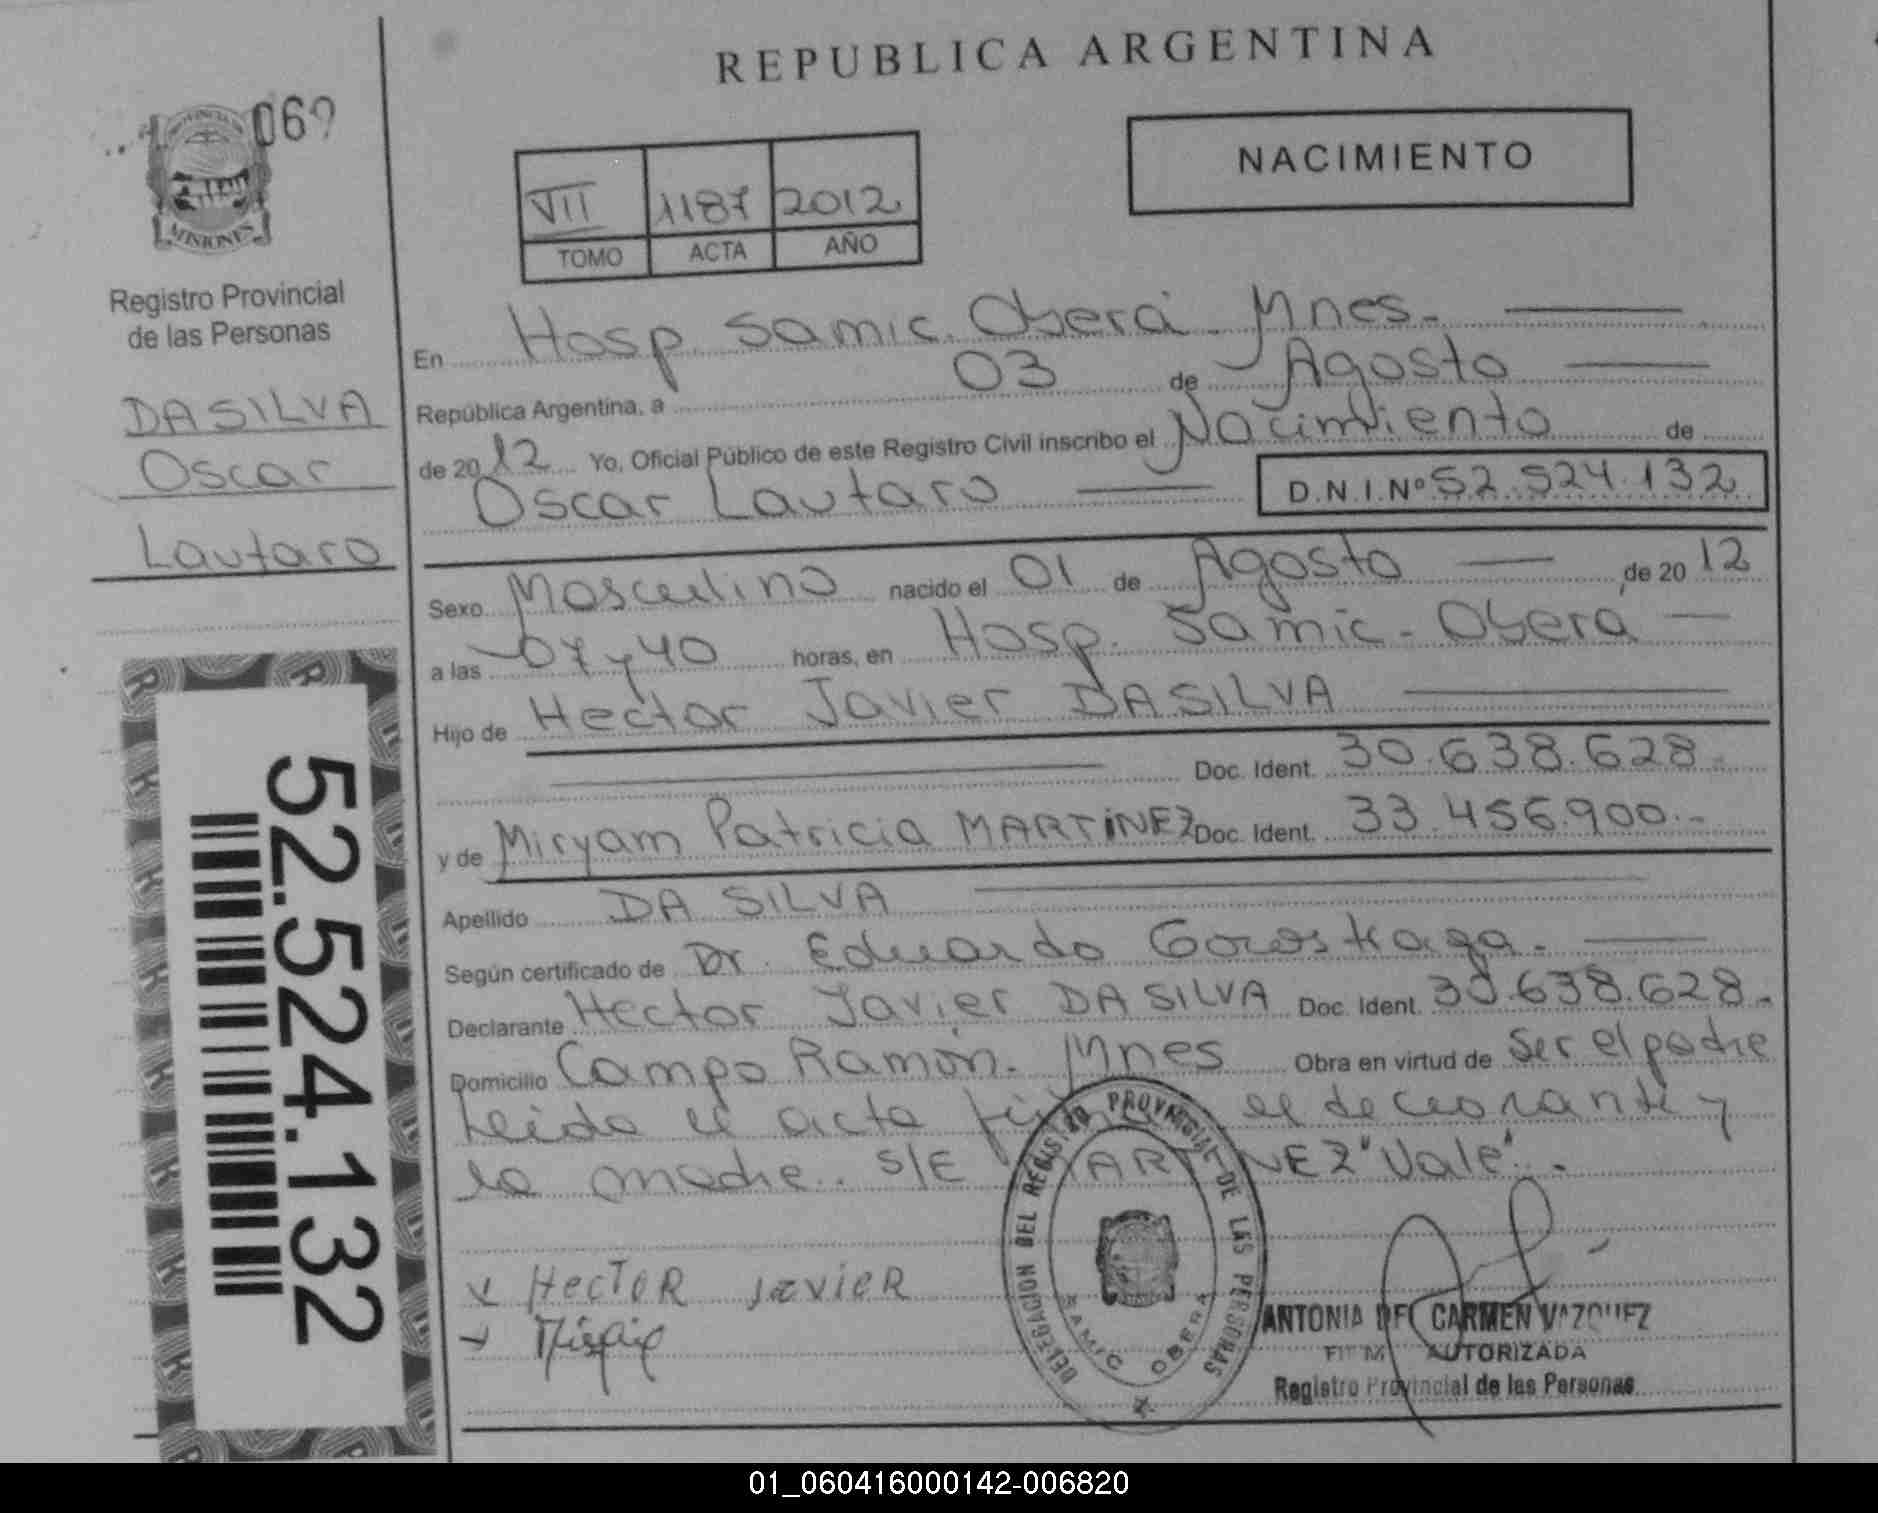 REPUBLICA ARGENTINA
MISIONES
Registro Provincial
de las Personas
DA SILVA
Oscar
Lautaro
52.524.132
NACIMIENTO
VII 1187 2012
TOMO ACTA AÑO
En Hosp. Samic. Oberá Mnes.
República Argentina, a 03 de Agosto
de 2012 Yo, Oficial Público de este Registro Civil inscribo el Nacimiento de
Oscar Lautaro D.N.I.Nº 52.524.132
Sexo Masculino nacido el 01 de Agosto de 2012
a las 07 y 40 horas, en Hosp. Samic - Oberá
Hijo de Hector Javier DA SILVA
Doc. Ident. 30.638.628.
y de Miryam Patricia MARTINEZ Doc. Ident. 33.456.900.-
Apellido DA SILVA
Según certificado de Dr. Eduardo
Declarante Hector Javier DA SILVA Doc. Ident. 30.638.628.
Domicilio Campo Ramón. Mnes Obra en virtud de Ser el padre
Leida el acta el declarante y
la madre. S/E MARTINEZ "Vale".
HecToR JavieR
DELEGACION DEL REGISTRO PROVINCIAL DE LAS PERSONAS
SAMIC OBERA
ANTONIA DEL CARMEN VAZQUEZ
FIRMA AUTORIZADA
Registro Provincial de las Personas
01_060416000142-006820